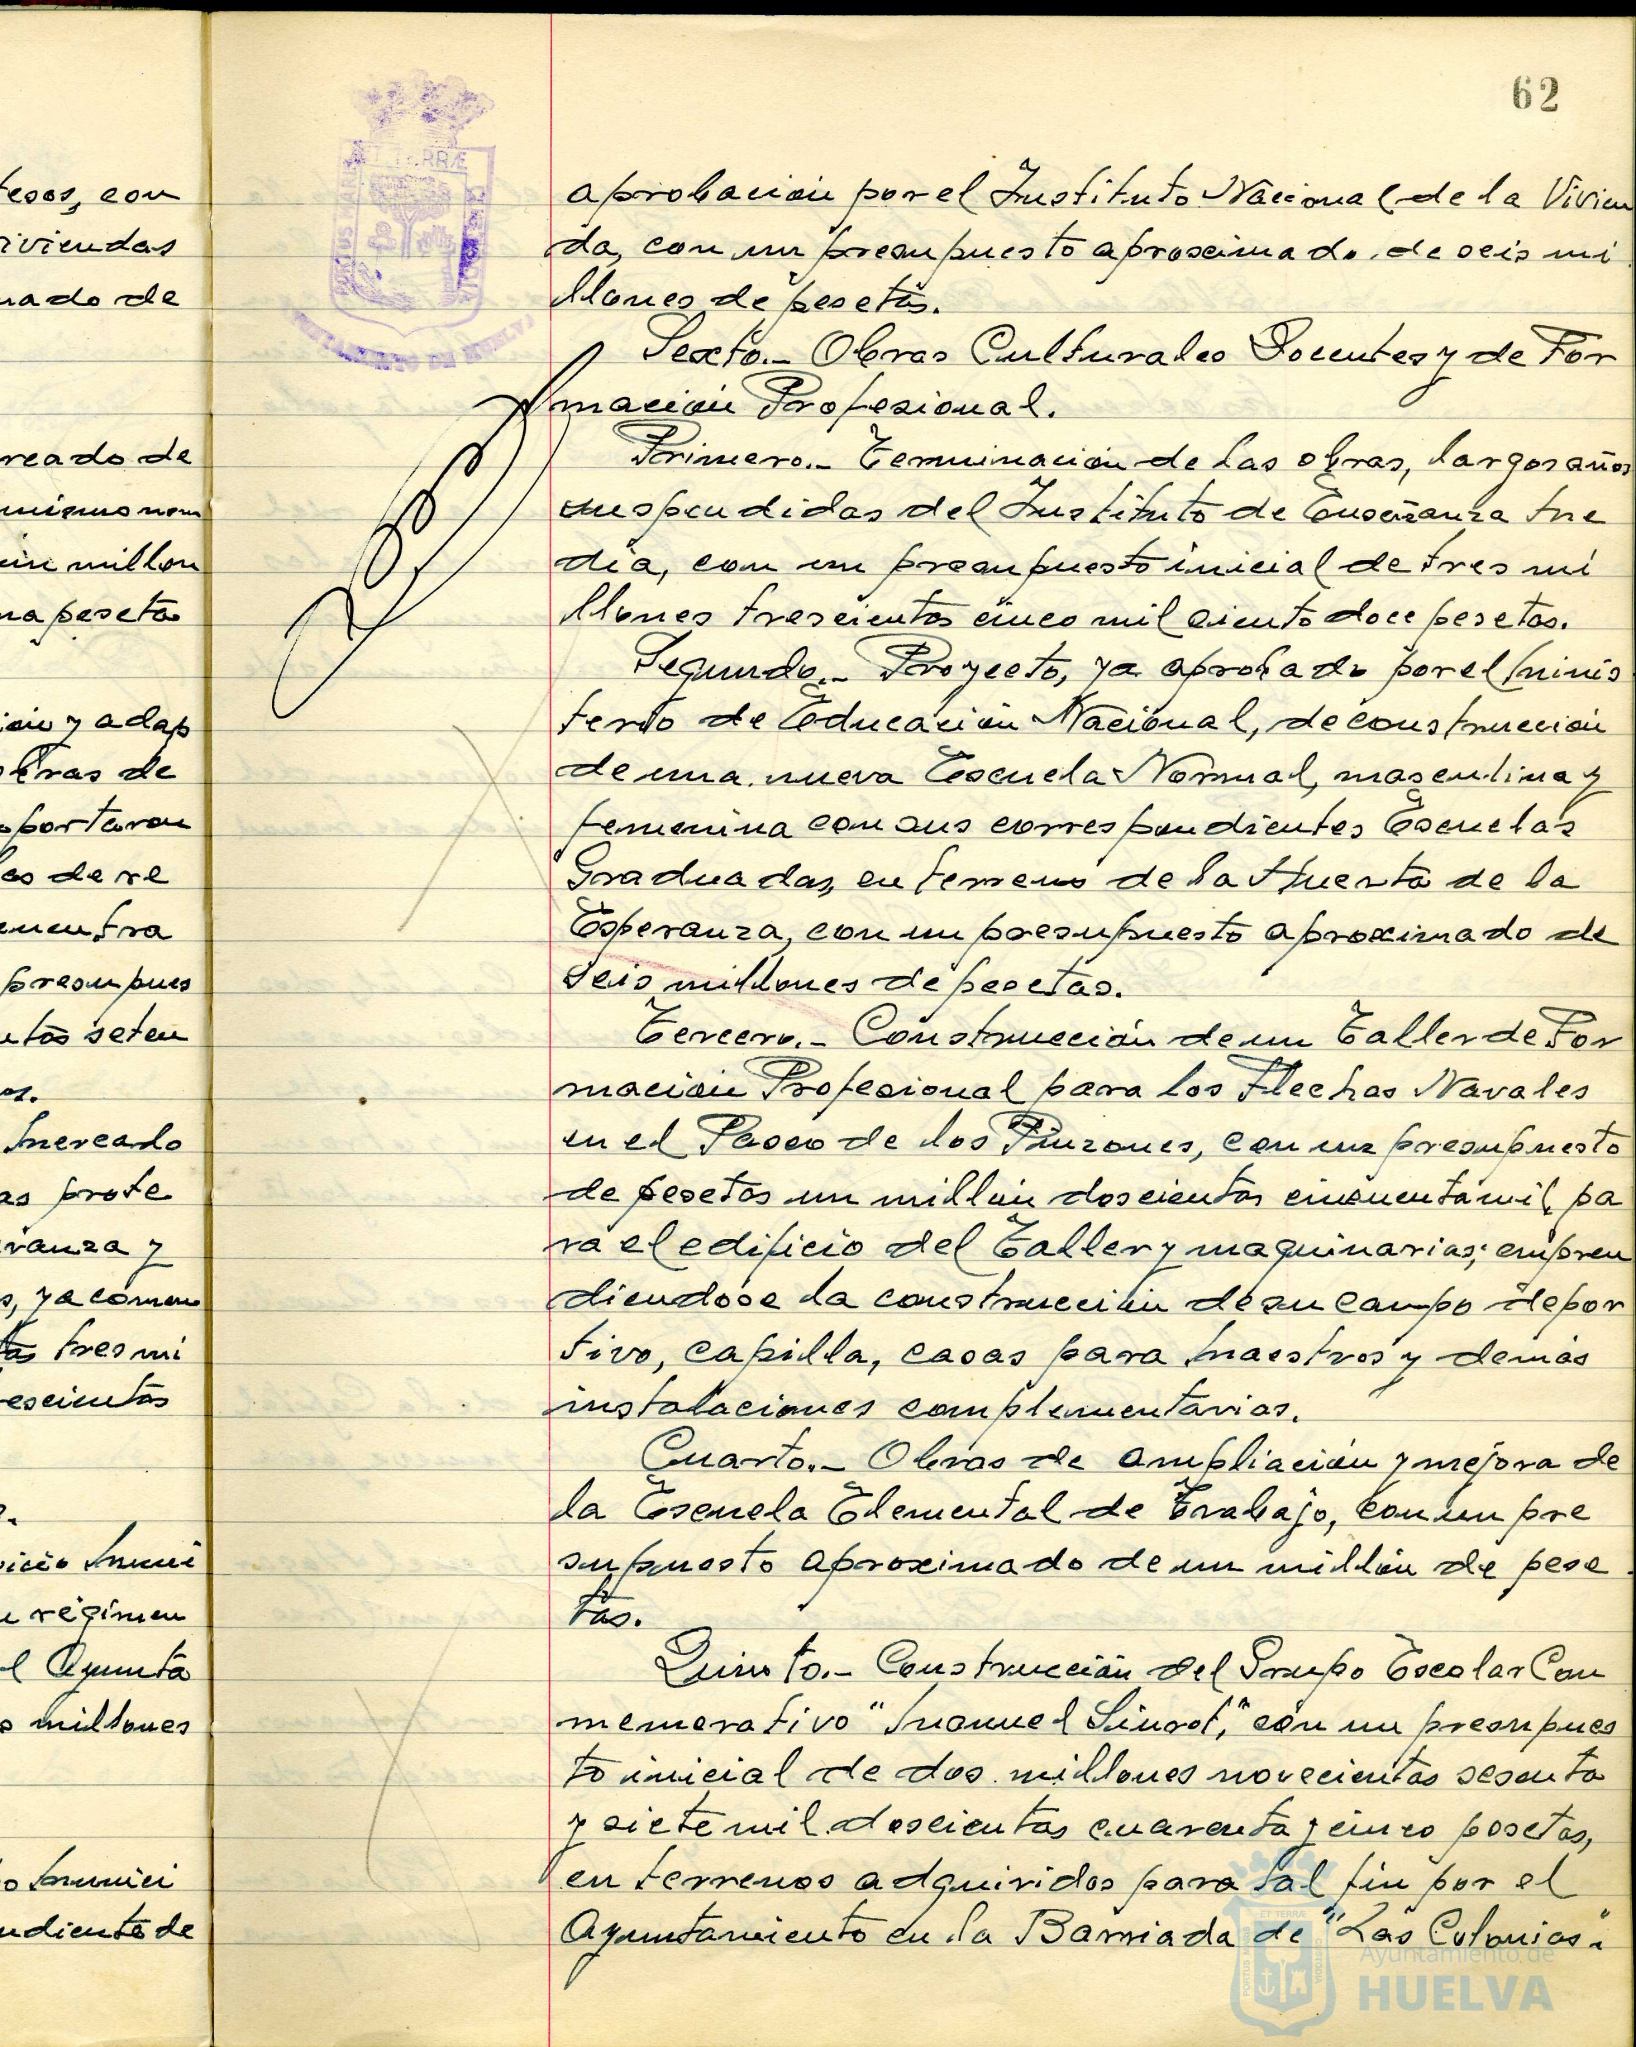 62
aprobación por el Instituto Nacional de la Vivien
da, con un presupuesto aproximado de seis mi
llones de pesetas.
Sexto.- Obras Culturales Docentes y de For
mación Profesional.
Primero.- Terminación de las obras, largos años
suspendidas del Instituto de Enseñanza Me
dia, con un presupuesto inicial de tres mi
llones trescientas cinco mil ciento doce pesetas.
Segundo.- Proyecto, ya aprobado por el Minis
terio de Educación Nacional, de construcción
de una nueva Escuela Normal, masculina y
femenina con sus correspondientes Escuelas
Graduadas, en terreno de la Huerta de la
Esperanza, con un presupuesto aproximado de
seis millones de pesetas.
Tercero.- Construcción de un Taller de For
mación Profesional para los Flechas Navales
en el Paseo de los Pinzones, con un presupuesto
de pesetas un millón doscientas cincuenta mil, pa
ra el edificio del Taller y maquinarias; empren
diendose la construcción de su campo depor
tivo, capilla, casas para Maestros y demás
instalaciones complementarias.
Cuarto.- Obras de ampliación y mejora de
la Escuela Elemental de Trabajo, con un pre
supuesto aproximado de un millón de pese
tas.
Quinto.- Construcción del Grupo Escolar Con
memorativo "Manuel Siurot", con un presupues
to inicial de dos millones novecientas sesenta
y siete mil doscientas cuarenta y cinco pesetas,
en terrenos adquiridos para tal fin por el
Ayuntamiento en la Barriada de "Las Colonias".
tesos, con
viviendas
mado de
reado de
mismo nom
un millon
na peseta
ión y adap
obras de
portaron
les de re
encuentra
presupues
ntas seten
Mercado
as prote
ranza y
s, ya comen
tas tres mi
rescientas
vicio Muni
régimen
el Ayunta
millones
Munici
ndiente de
ET TERRÆ
AYUNTAMIENTO DE HUELVA
Ayuntamiento de
HUELVA